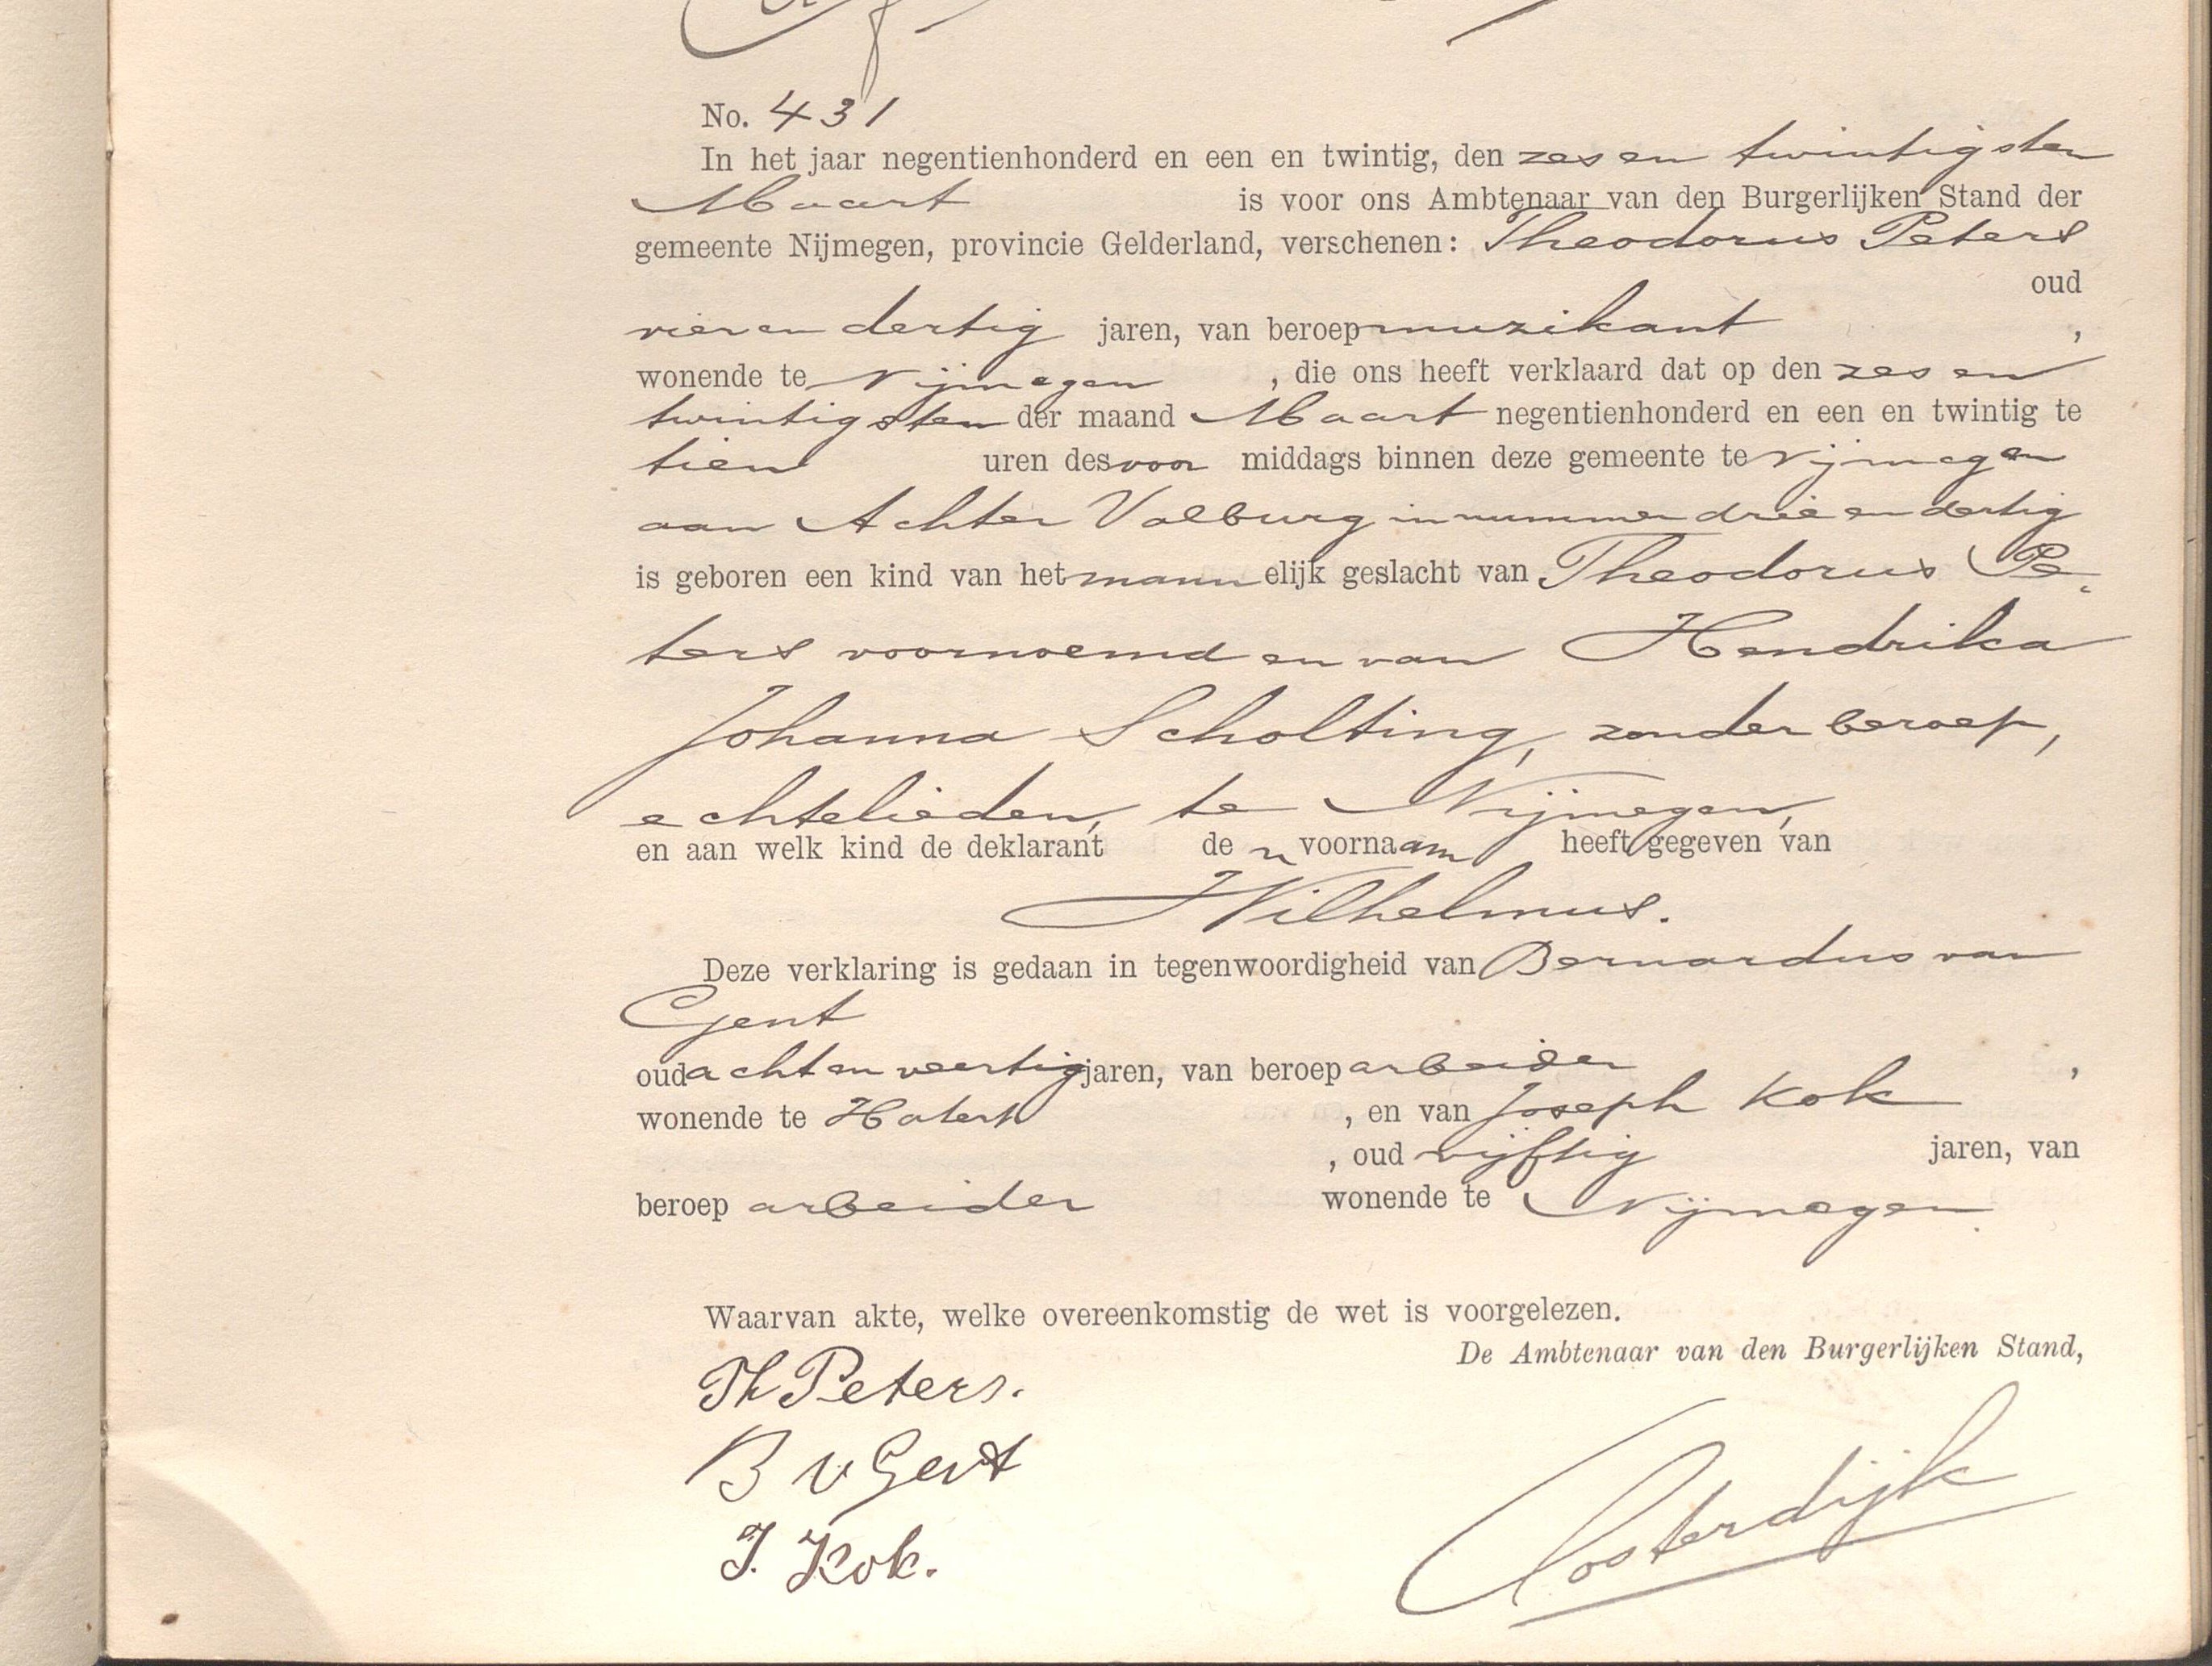 No. 431
In het jaar negentienhonderd en een en twintig, den zes en twintigsten
Maart is voor ons Ambtenaar van den Burgerlijken Stand der
gemeente Nijmegen, provincie Gelderland, verschenen: Theodorus Peters
oud
vier en dertig jaren, van beroep muzikant ,
wonende te Nijmegen , die ons heeft verklaard dat op den zes en
twintigsten der maand Maart negentienhonderd en een en twintig te
tien uren des voor middags binnen deze gemeente te Nijmegen
aan Achter Valburg in nummer drie en dertig
is geboren een kind van het mannelijk geslacht van Theodorus Pe-
ters voornoemd en van Hendrika
Johanna Scholting, zonder beroep,
echtelieden, te Nijmegen,
en aan welk kind de deklarant de n voornaam heeft gegeven van
Wilhelmus.
Deze verklaring is gedaan in tegenwoordigheid van Bernardus van
Gent
oud acht en veertig jaren, van beroep arbeider ,
wonende te Hatert , en van Joseph Kok
, oud vijftig jaren, van
beroep arbeider wonende te Nijmegen.
Waarvan akte, welke overeenkomstig de wet is voorgelezen.
De Ambtenaar van den Burgerlijken Stand,
Th Peters.
B v Gent
J. Kok.
Oosterdijk